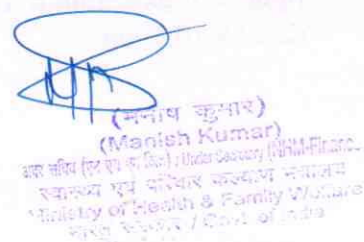 (मनीष कुमार)
(Manish Kumar)
अवर सचिव / Under Secretary (NHM-Finance
स्वास्थ्य एवं परिवार कल्याण मंत्रालय
Ministry of Health & Family Welfare
भारत सरकार / Govt. of India